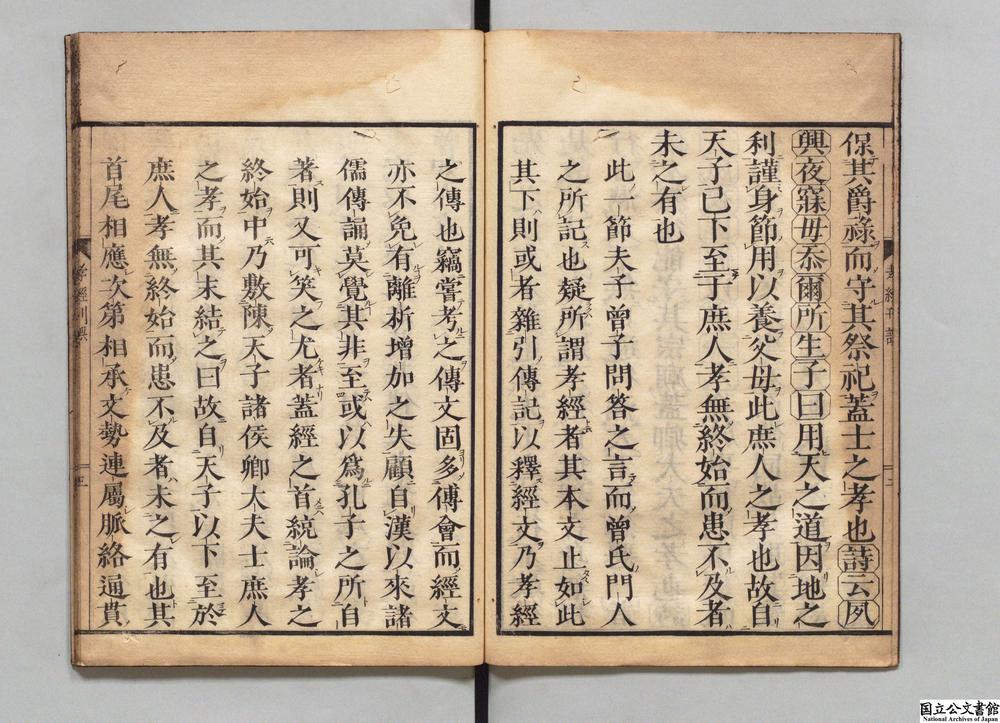 保其爵祿而守其祭祀蓋士之孝也詩云夙
興夜寐毋忝爾所生子曰用天之道因地之
利謹身節用以養父母此庶人之孝也故自
天子已下至于庶人孝無終始而患不及者
未之有也
此一節夫子曾子問答之言而曾氏門人
之所記也疑所謂孝經者其本文止如此
其下則或者雜引傳記以釋經文乃孝經
孝經刊誤
二
之傳也竊嘗考之傳文固多傅會而經文
亦不免有離析增加之失顧自漢以來諸
儒傳誦莫覺其非至或以爲孔子之所自
著則又可笑之尤者蓋經之首統論孝之
終始中乃敷陳天子諸侯卿大夫士庶人
之孝而其末結之曰故自天子以下至於
庶人孝無終始而患不及者未之有也其
首尾相應次第相承文勢連屬脈絡通貫
孝經刊誤
国立公文書館
National Archives of Japan